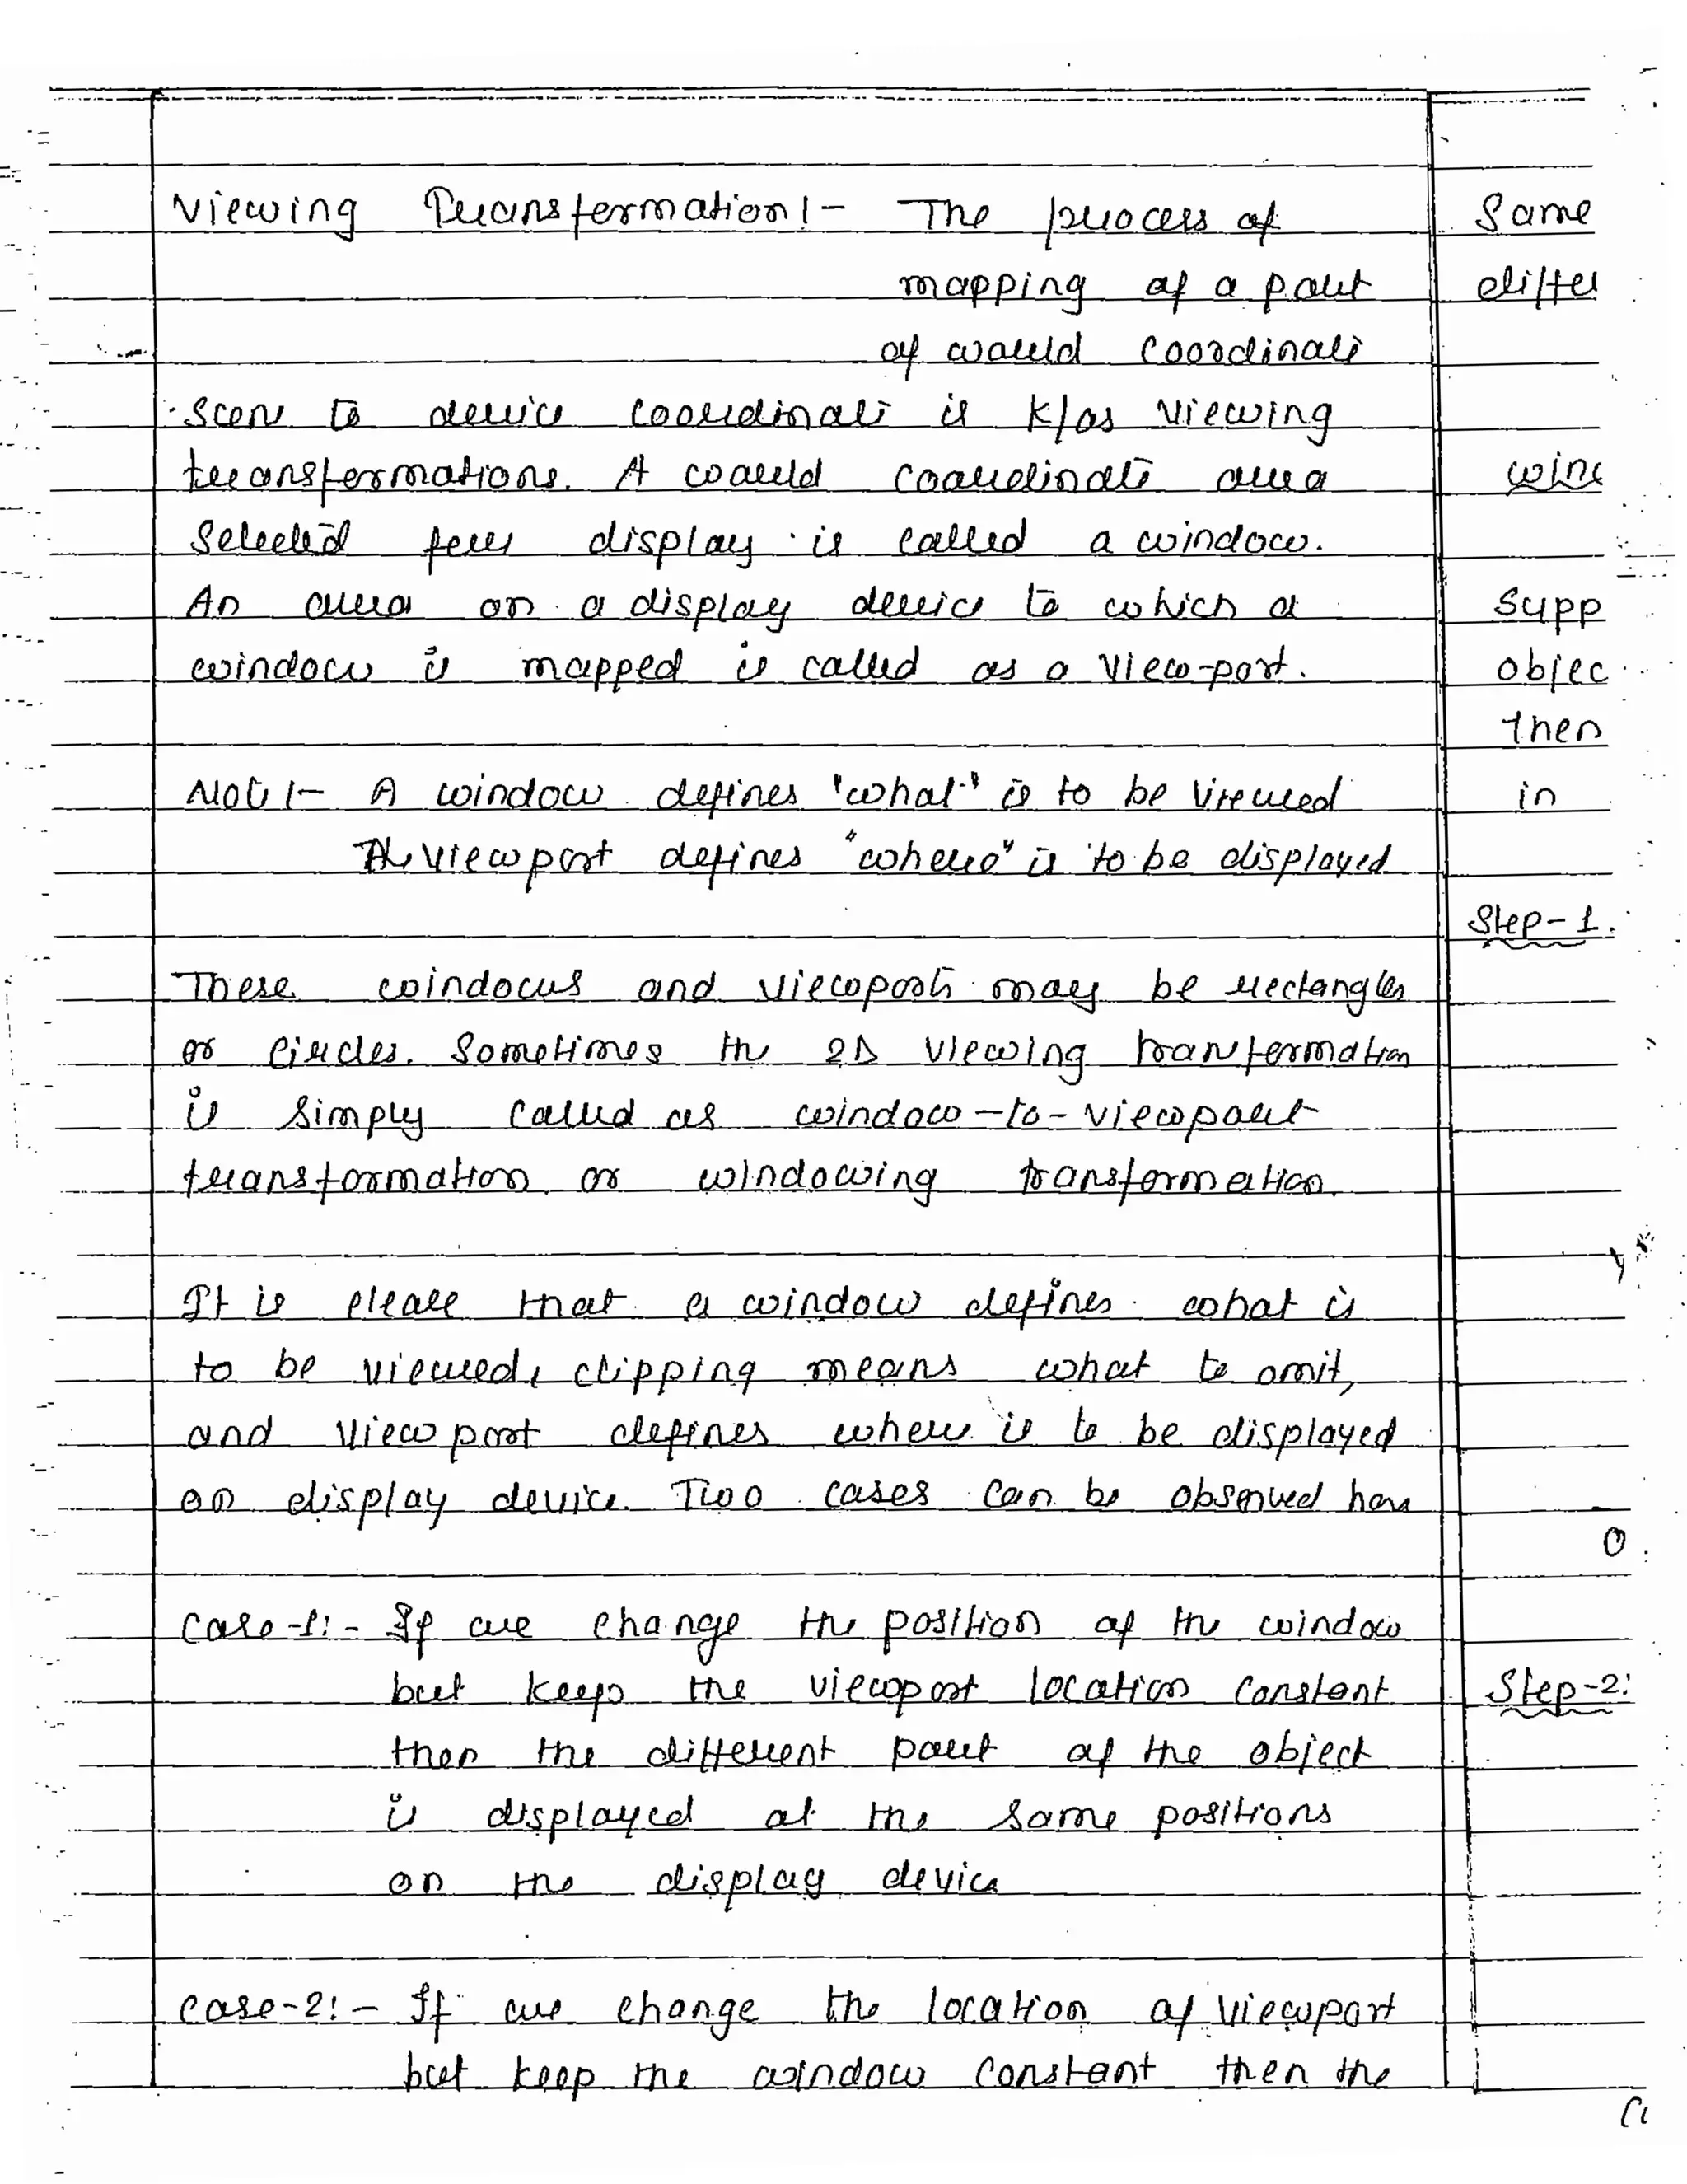 Viewing Transformation :- The process of
mapping of a part
of world coordinate
scene to device coordinate is k/as viewing
transformations. A world coordinate area
selected for display is called a window.
An area on a display device to which a
window is mapped is called as a view-port.
Note :- A window defines "what" is to be viewed
The viewport defines "where" is to be displayed
These windows and viewports may be rectangles
or circles. Sometimes the 2D viewing tranformation
is simply called as window-to-viewport
transformation or windowing transformation.
It is clear that a window defines what is
to be viewed, clipping means what to omit,
and viewport defines where is to be displayed
on display device. Two cases can be observed here
Case-1:- If we change the position of the window
but keeps the viewport location constant
then the different part of the object
is displayed at the same positions
on the display device
Case-2:- If we change the location of viewport
but keep the window constant then the
Same
differ
wind
Supp
objec
then
in
Step-1.
y
0
Step-2: